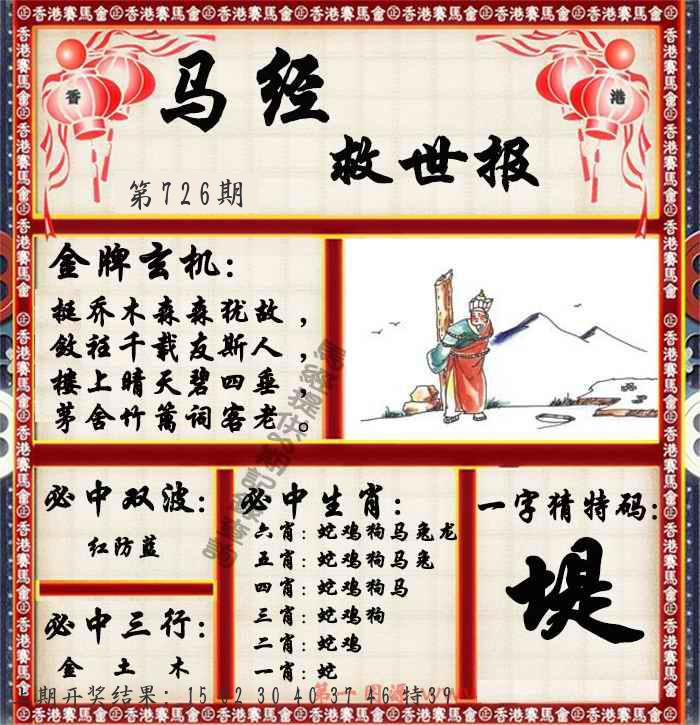 香港賽馬會
香
港
马经
救世报
第726期
金牌玄机:
挺乔木森森犹故，
敛衽千载友斯人，
楼上晴天碧四垂，
茅舍竹篱词客老。
必中双波:
红防蓝
必中三行:
金 土 木
必中生肖:
六肖:蛇鸡狗马兔龙
五肖:蛇鸡狗马兔
四肖:蛇鸡狗马
三肖:蛇鸡狗
二肖:蛇鸡
一肖:蛇
一字猜特码:
堤
期开奖结果: 15 02 30 40 37 46 特39